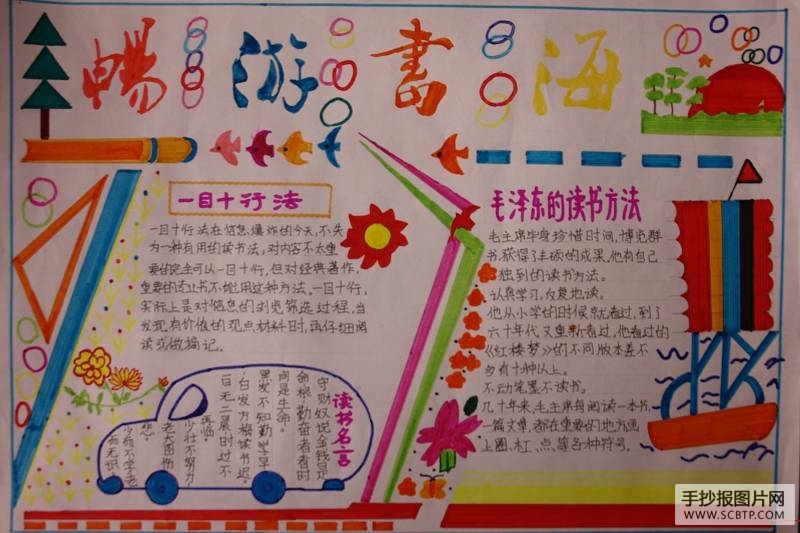 暢游書海
一目十行法
一目十行法在信息爆炸的今天,不失
为一种有用的读书法。对内容不太重
要的完全可以一目十行,但对经典著作,
重要的考证书不能用这种方法,一目十行,
实际上是对信息的浏览筛选过程,当
发现有价值的观点材料时,再仔细阅
读或做摘记。
毛泽东的读书方法
毛主席毕身珍惜时间,博览群
书,获得了丰硕的成果,他有自己
独到的读书方法。
认真学习,反复地读。
他从小学的时候就看过,到了
六十年代又重新看过,他看过的
《红楼梦》的不同版本差不
多有十种以上。
不动笔墨不读书。
几十年来,毛主席每阅读一本书,
一篇文章,都在重要的地方画
上圈、杠、点等各种符号.
读书名言
守财奴说金钱是
命根,勤奋者看时
间是生命。
黑发不知勤学早
,白发方悔读书迟。
一日无二晨时过不
再临。
少壮不努力
老大图伤
悲。
少而不学老
而无识
手抄报图片网
WWW.SCBTP.COM